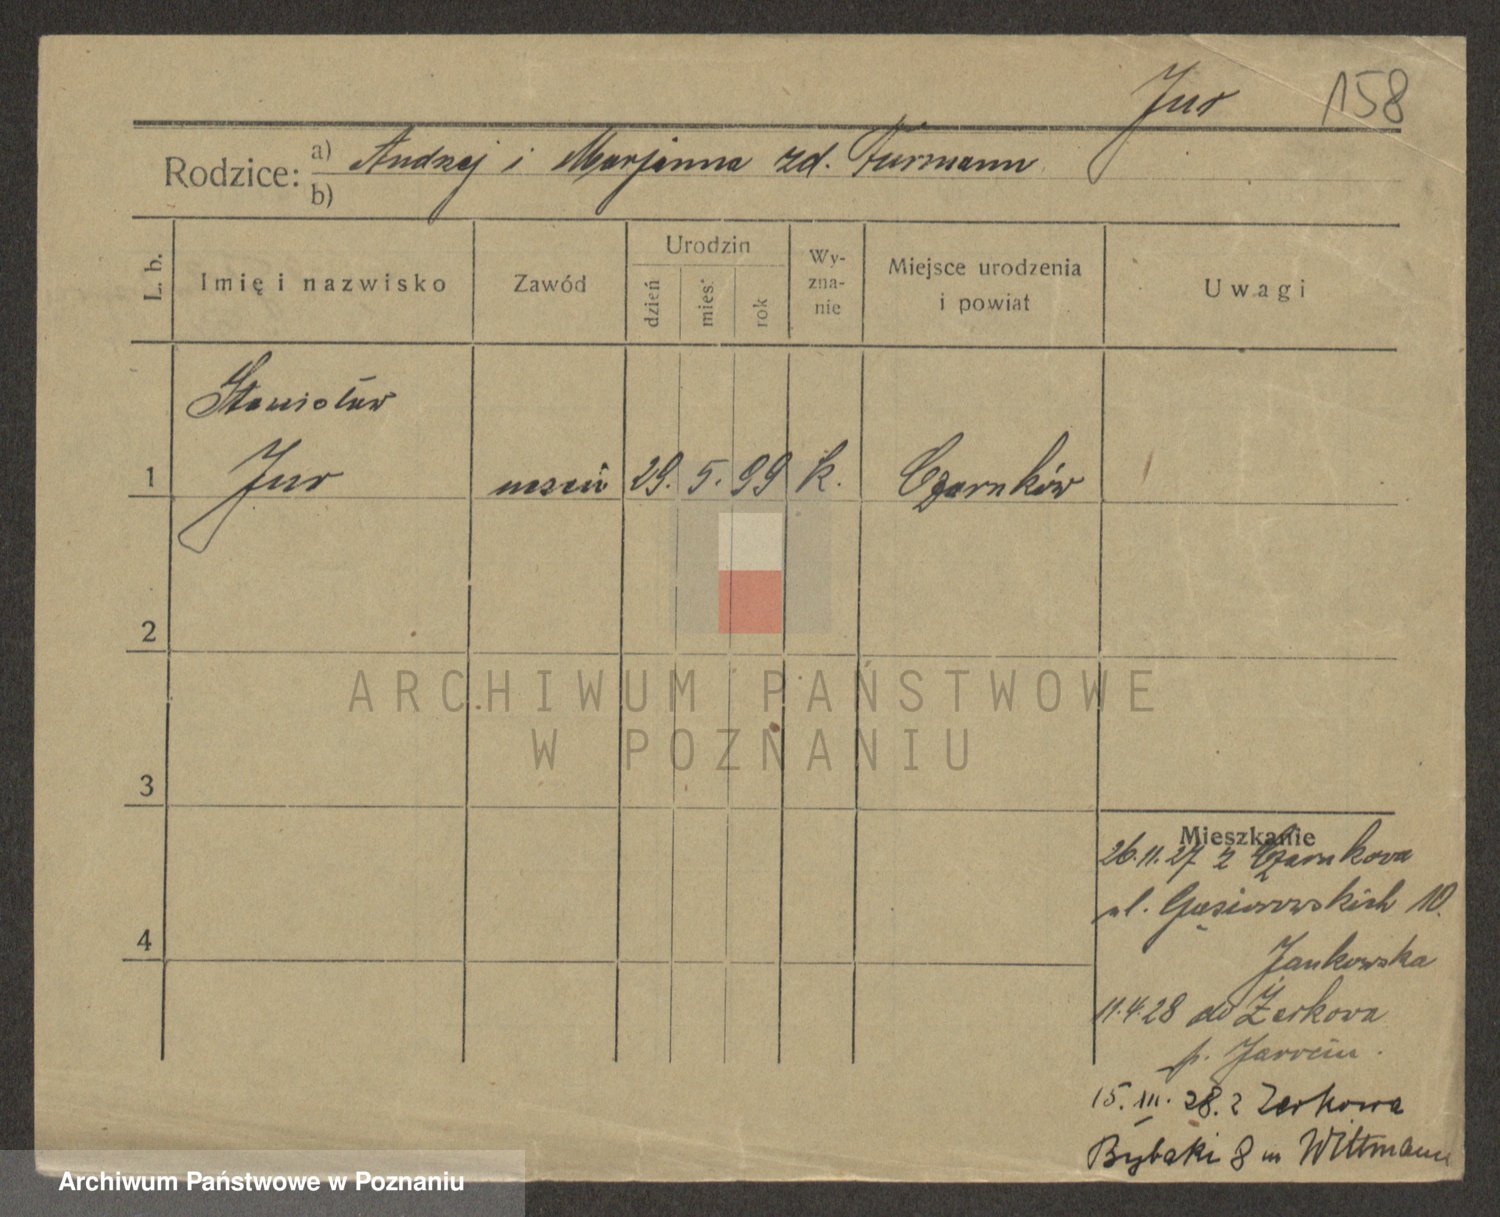 Jur 158
Rodzice: a) Andrzej i Marjanna zd. Furmann
b)
L. b. Imię i nazwisko Zawód Urodzin dzień mies. rok Wy-zna-nie Miejsce urodzenia i powiat Uwagi
Stanisław
1 Jur uczeń 29. 5. 99 k. Czarnków
2
ARCHIWUM PAŃSTWOWE
W POZNANIU
3
Mieszkanie
26.11.27 z Czarnkowa
ul. Gąsiorowskich 10.
4
Jankowska
11.4.28 do Żerkowa
p. Jarocin.
15. III. 28. z Zerkowa
Rybaki 8 m Wittmann
Archiwum Państwowe w Poznaniu